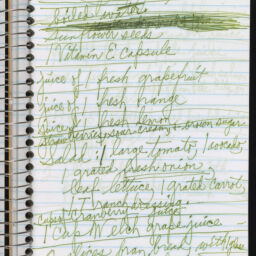 boiled water
Sunflower seeds
1 Vitamin E capsule
juice of 1 fresh grapefruit
juice of 1 fresh orange
juice of 1 fresh lemon
Strawberries, sour cream + brown sugar
Salad: 1 large tomato, 1 avocado,
1 grated fresh onion,
leaf lettuce, 1 grated carrot,
1 T ranch dressing.
Cranberry juice
1 Cup Welch grape juice.
slices bran bread, with